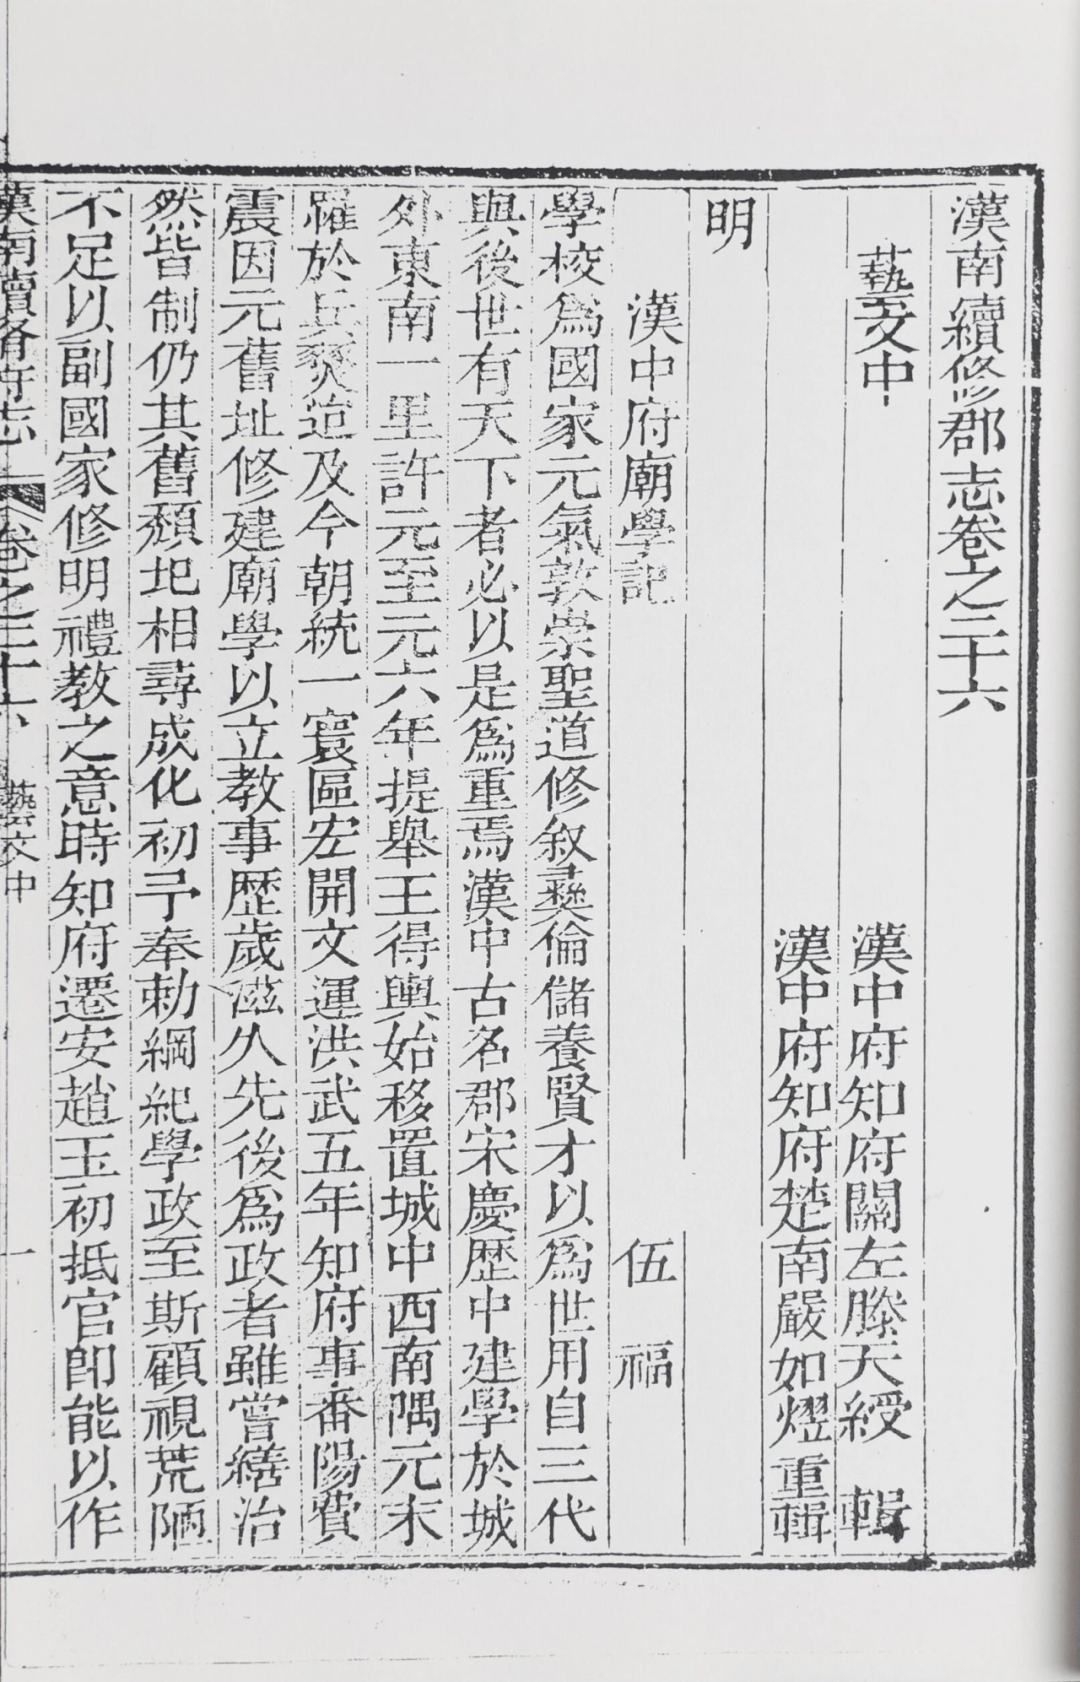 漢南續修郡志卷之二十六
藝文中
漢中府知府關左滕天綬 輯
漢中府知府楚南嚴如熤重輯
明
漢中府廟學記 伍福
學校爲國家元氣敦崇聖道修叙彝倫儲養賢才以爲世用自三代
與後世有天下者必以是爲重焉漢中古名郡宋慶歷中建學於城
外東南一里許元至元六年提舉王得輿始移置城中西南隅元末
罹於兵燹迨及今朝統一寰區宏開文運洪武五年知府事番陽費
震因元舊址修建廟學以立教事歷歲滋久先後爲政者雖嘗繕治
然皆制仍其舊頹圯相尋成化初予奉勅綱紀學政至斯顧視荒陋
不足以副國家修明禮教之意時知府遷安趙玉初抵官卽能以作
漢南續修府志 卷之二十六 藝文中 一